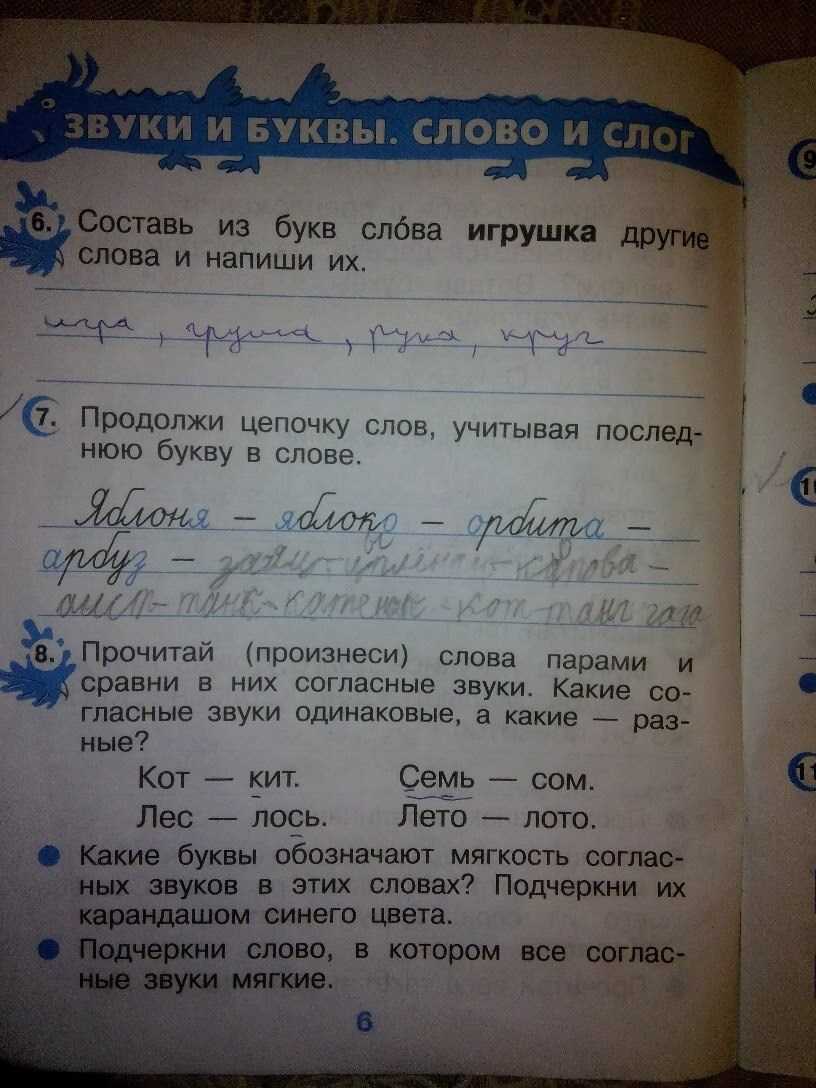 ЗВУКИ И БУКВЫ. СЛОВО И СЛОГ
6. Составь из букв сло́ва игрушка другие
слова и напиши их.
игра, груша, рука, круг
7. Продолжи цепочку слов, учитывая послед-
нюю букву в слове.
Яблоня – яблоко – орбита –
арбуз – –
аист - танк - - кот
8. Прочитай (произнеси) слова парами и
сравни в них согласные звуки. Какие со-
гласные звуки одинаковые, а какие — раз-
ные?
Кот — кит. Семь — сом.
Лес — лось. Лето — лото.
Какие буквы обозначают мягкость соглас-
ных звуков в этих словах? Подчеркни их
карандашом синего цвета.
Подчеркни слово, в котором все соглас-
ные звуки мягкие.
6
9
10
11